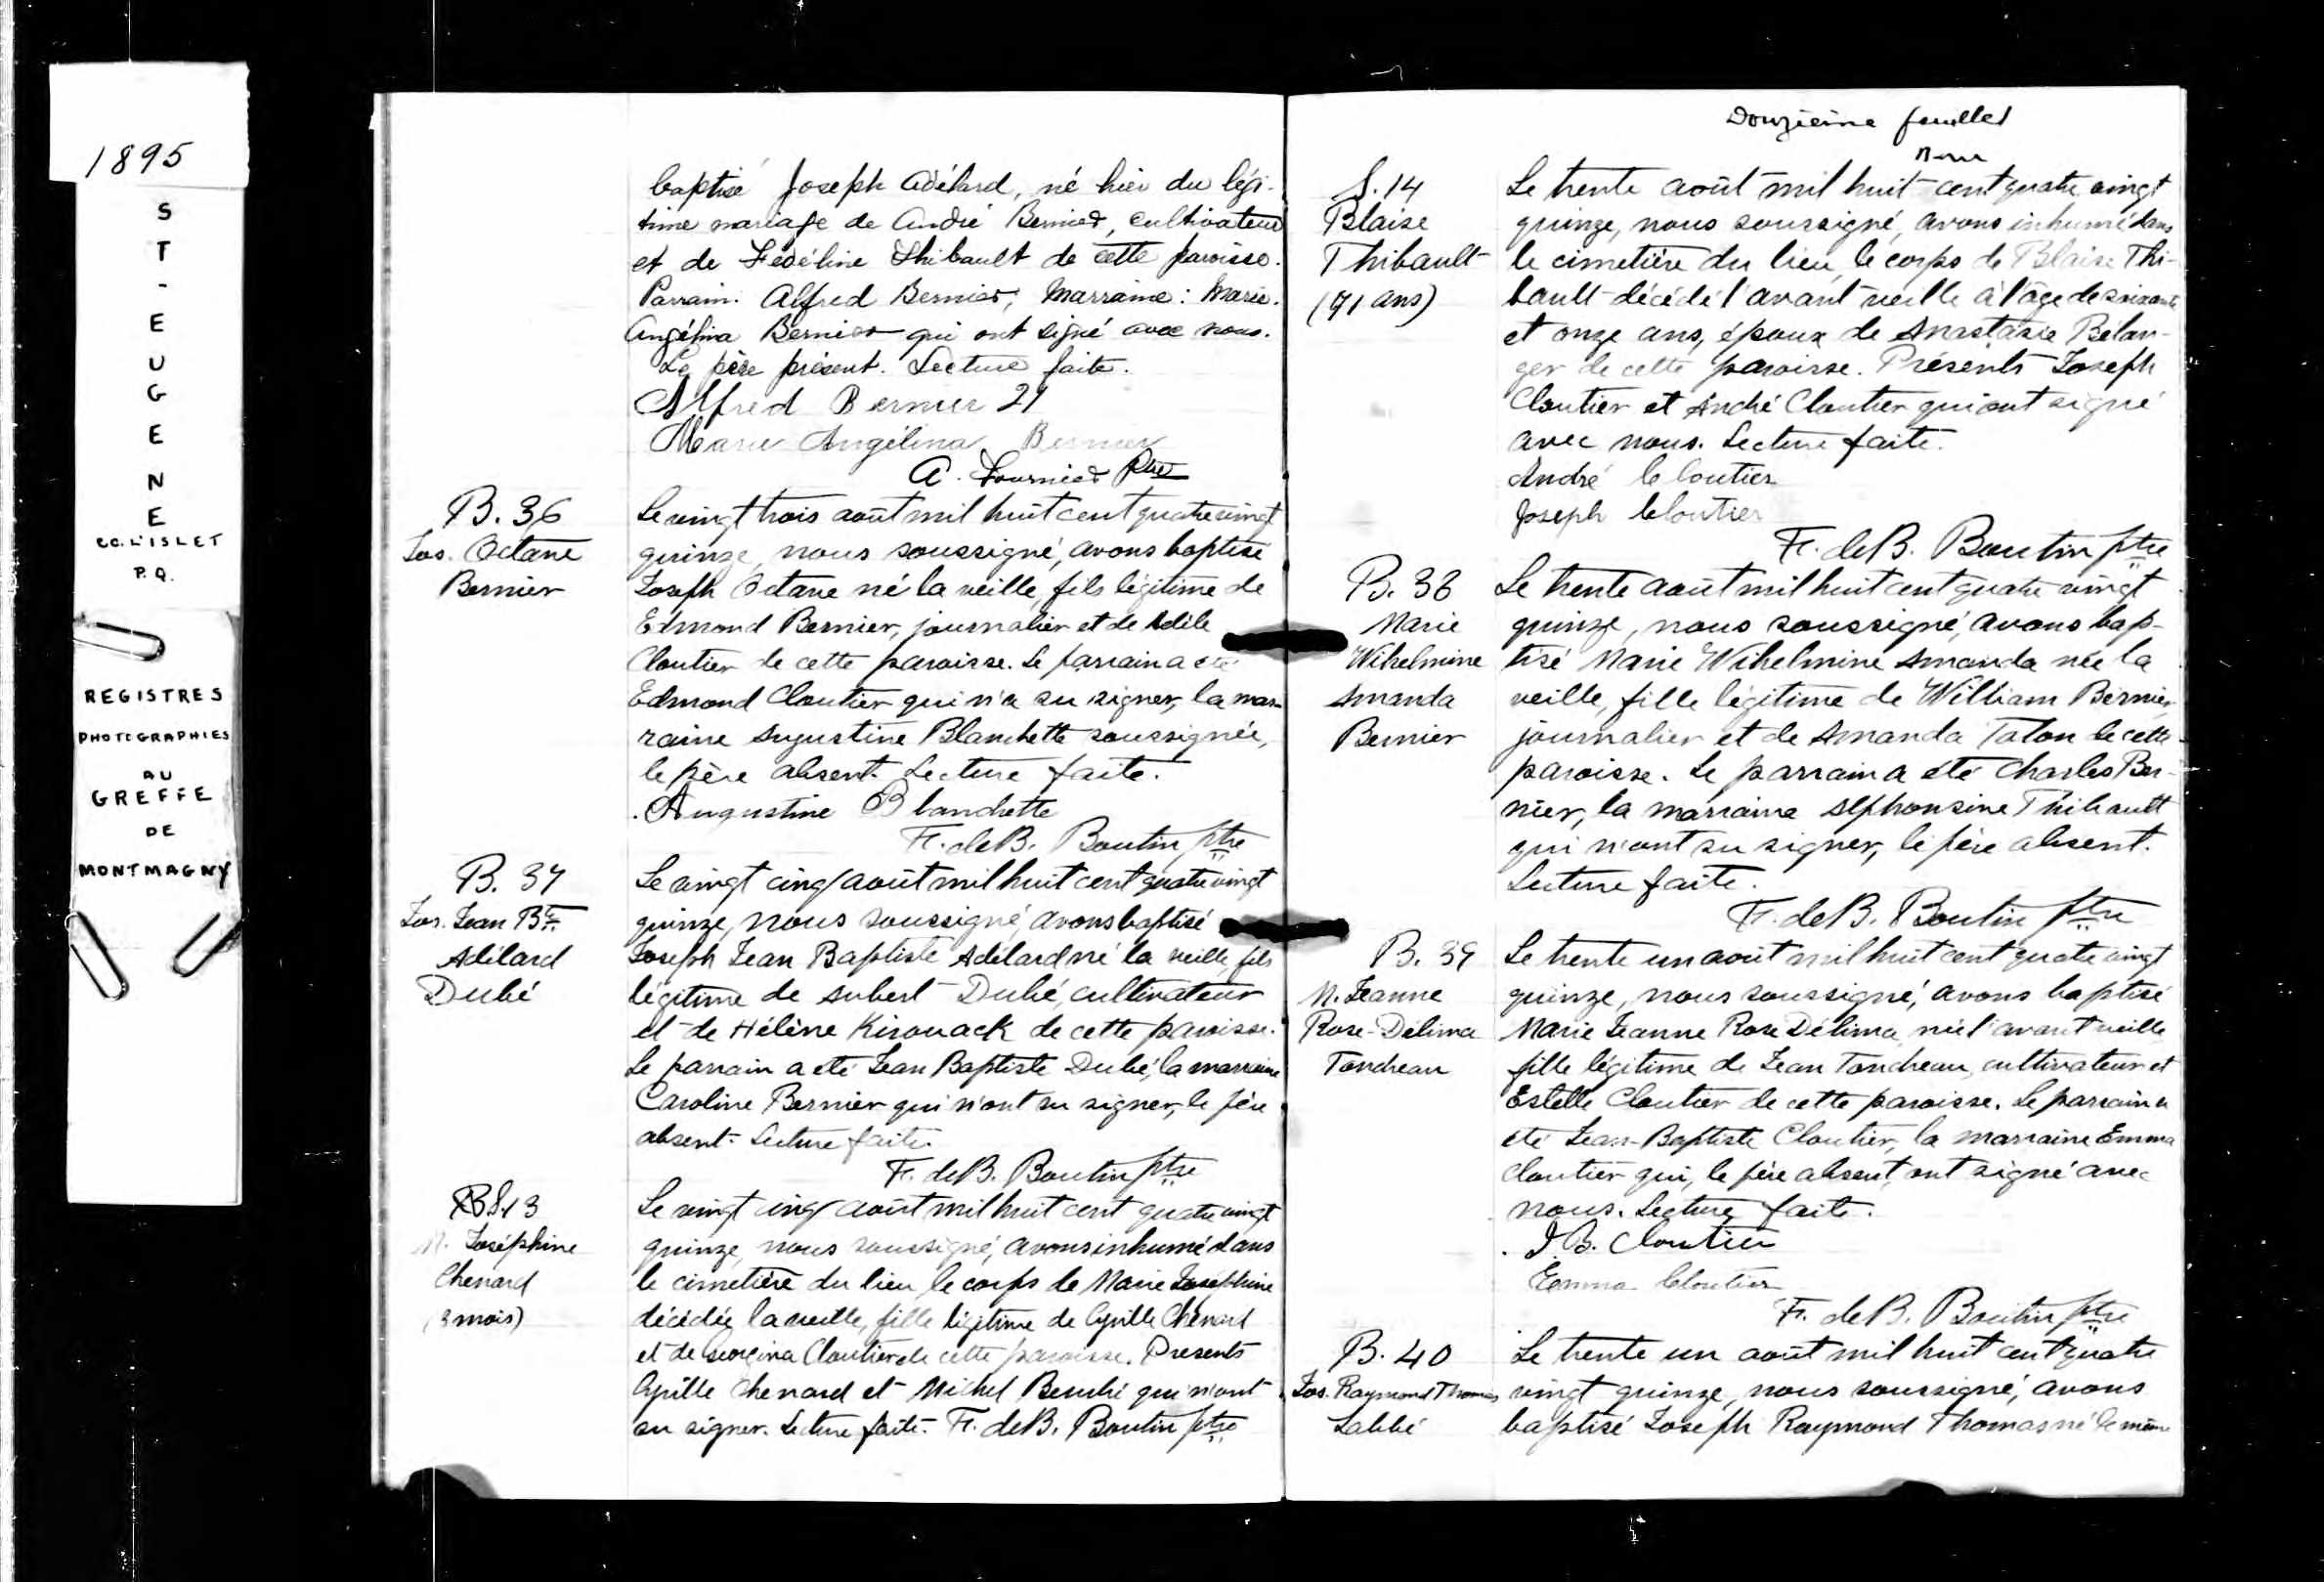 1895
S
T
-
E
U
G
E
N
E
CO. L'ISLET
P.Q.
REGISTRES
PHOTOGRAPHIES
AU
GREFFE
DE
MONTMAGNY
baptisé Joseph Adélard, né hier du légi-
time mariage de André Bernier, cultivateur
et de Fédéline Thibault de cette paroisse.
Parrain: Alfred Bernier; Marraine: Marie-
Angélina Bernier qui ont signé avec nous.
Le père présent. Lecture faite.
Alfred Bernier 21
Marie Angélina Bernier
A. Fournier Ptre
B. 36
Jos. Octave
Bernier
Le vingt trois août mil huit cent quatre vingt
quinze, nous soussigné, avons baptisé
Joseph Octave né la veille, fils légitime de
Edmond Bernier, journalier et de Adèle
Cloutier de cette paroisse. Le parrain a été
Edmond Cloutier qui n'a su signer, la mar-
raine Augustine Blanchette soussignée,
le père absent. Lecture faite.
Augustine Blanchette
F. de B. Boutin ptre
B. 37
Jos. Jean Bte
Adélard
Dubé
Le vingt cinq août mil huit cent quatre vingt
quinze, nous soussigné, avons baptisé
Joseph Jean Baptiste Adélard né la veille, fils
légitime de Aubert Dubé, cultivateur
et de Hélène Kirouack de cette paroisse.
Le parrain a été Jean Baptiste Dubé, la marraine
Caroline Bernier qui n'ont su signer, le père
absent. Lecture faite.
F. de B. Boutin ptre
S. 13
M. Joséphine
Chenard
(3 mois)
Le vingt cinq août mil huit cent quatre vingt
quinze, nous soussigné, avons inhumé dans
le cimetière du lieu le corps de Marie Joséphine
décédée la veille, fille légitime de Cyrille Chenard
et de Georgina Cloutier de cette paroisse. Présents
Cyrille Chenard et Michel Beubé qui n'ont
su signer. Lecture faite. F. de B. Boutin ptre
Douzième feuillet
S. 14
Blaise
Thibault
(71 ans)
Le trente août mil huit cent quatre vingt
quinze, nous soussigné, avons inhumé dans
le cimetière du lieu, le corps de Blaise Thi-
bault décédé l'avant veille à l'âge de soixante
et onze ans, époux de Anastasie Bélan-
ger de cette paroisse. Présents Joseph
Cloutier et André Cloutier qui ont signé
avec nous. Lecture faite.
André Cloutier
Joseph Cloutier
F. de B. Boutin ptre
B. 38
Marie
Wihelmine
Amanda
Bernier
Le trente août mil huit cent quatre vingt
quinze, nous soussigné, avons bap-
tisé Marie Wihelmine Amanda née la
veille, fille légitime de William Bernier,
journalier et de Amanda Talon de cette
paroisse. Le parrain a été Charles Ber-
nier, la marraine Alphonsine Thibault
qui n'ont su signer, le père absent.
Lecture faite.
F. de B. Boutin ptre
B. 39
M. Jeanne
Rose-Délima
Tondreau
Le trente un août mil huit cent quatre vingt
quinze, nous soussigné, avons baptisé
Marie Jeanne Rose Délima, née l'avant veille
fille légitime de Jean Tondreau, cultivateur et
Estelle Cloutier de cette paroisse. Le parrain a
été Jean-Baptiste Cloutier, la marraine Emma
Cloutier qui, le père absent, ont signé avec
nous. Lecture faite.
J. B. Cloutier
Emma Cloutier
F. de B. Boutin ptre
B. 40
Jos. Raymond Thomas
Labbé
Le trente un août mil huit cent quatre
vingt quinze, nous soussigné, avons
baptisé Joseph Raymond Thomas né le même